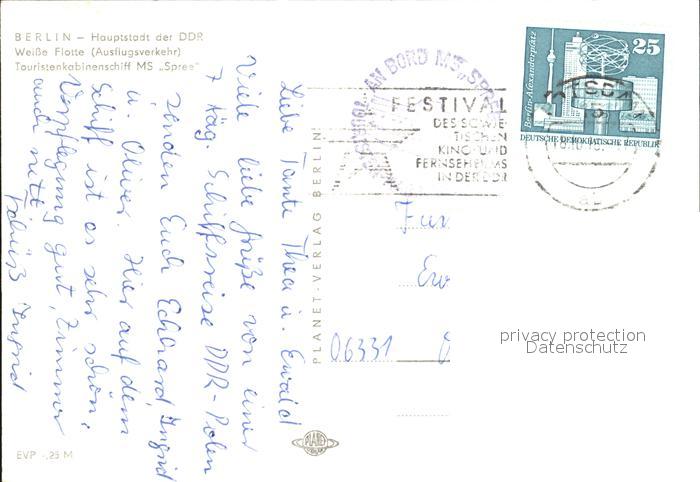 BERLIN – Hauptstadt der DDR
Weiße Flotte (Ausflugsverkehr)
Touristenkabinenschiff MS „Spree"
Liebe Tante Thea u. Ewald
Viele liebe Grüße von einer
7 täg. Schiffsreise DDR-Polen
senden Euch Eckhard, Ingrid
u. Oliver. Hier auf dem
Schiff ist es sehr schön,
Verpflegung gut, Zimmer
auch nett.
Ingrid
PLANET-VERLAG BERLIN
AN BORD MS „SPREE
FESTIVAL
DES SOWJE-
TISCHEN
KINO- UND
FERNSEHFILMS
IN DER DDR
Berlin-Alexanderplatz
25
DEUTSCHE DEMOKRATISCHE REPUBLIK
06331
privacy protection
Datenschutz
PLANET
EVP -,25 M